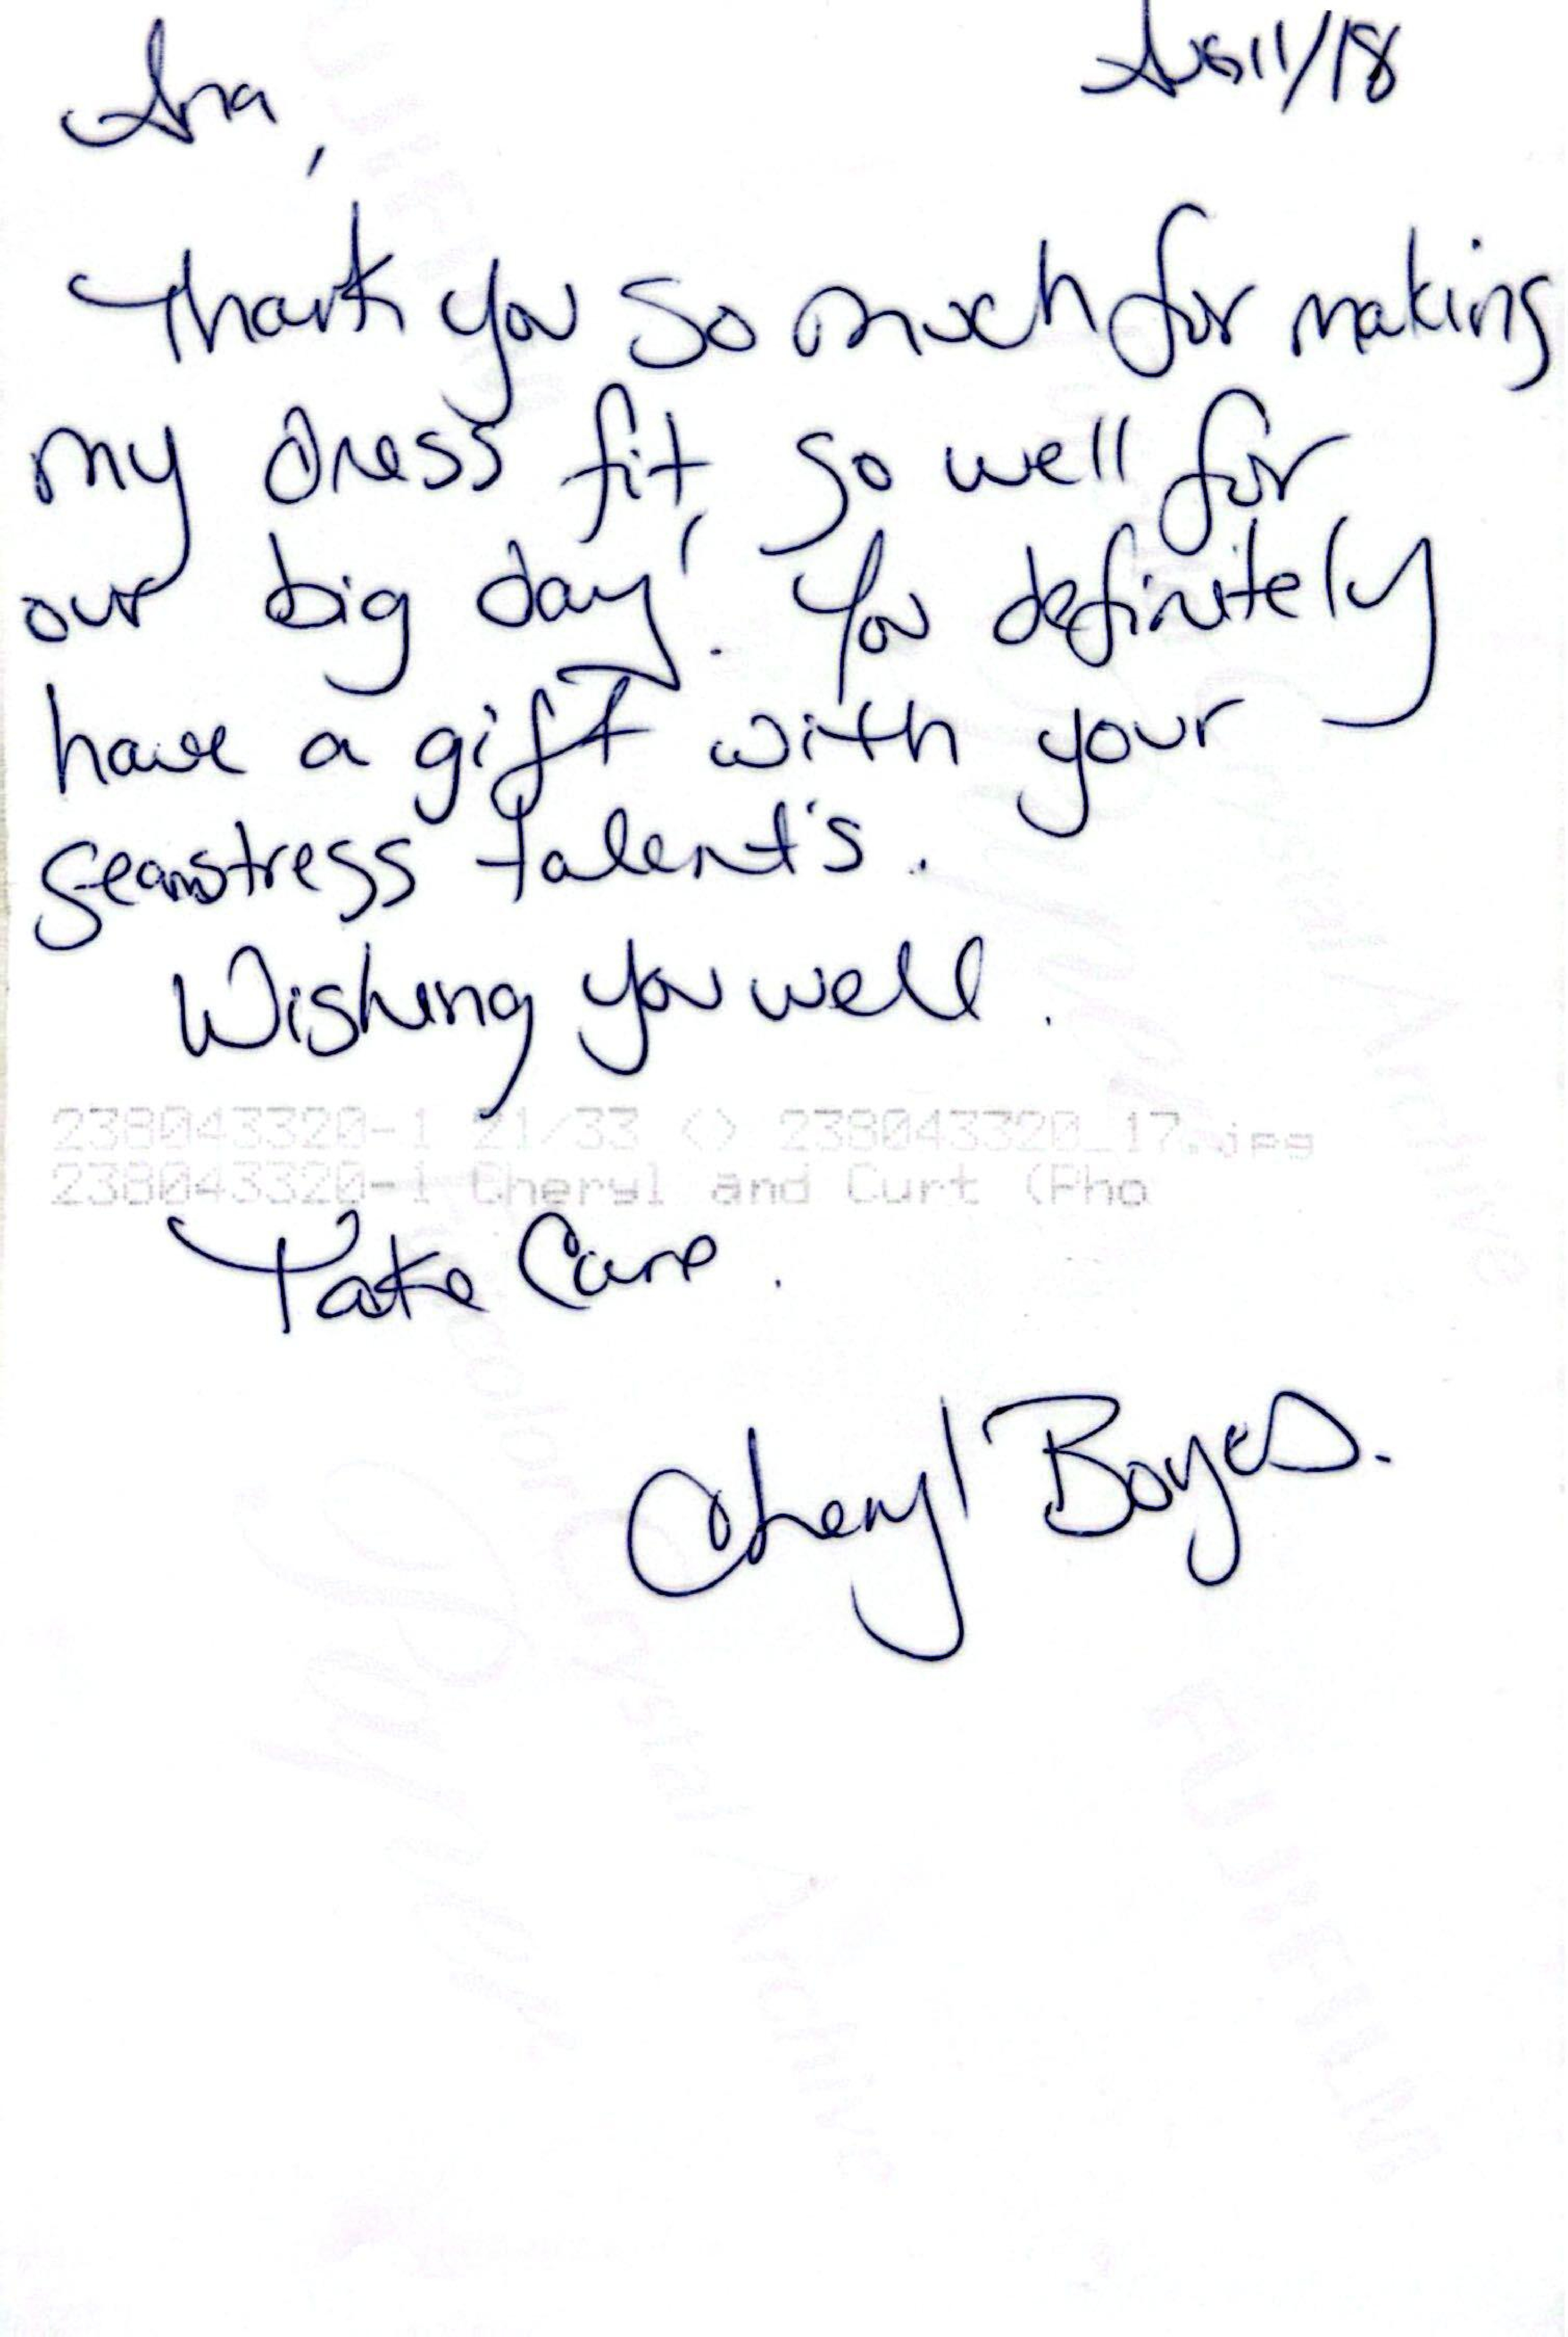 Ana,
Aug 11/18
Thank you so much for making
my dress fit so well for
'our big day'. You definitely
have a gift with your
seamstress talent's.
Wishing you well.
238043320-1 21/33 <> 238043320_17.jpg
238043320-1 Cheryl and Curt (Pho
Take Care.
Cheryl Boyes.